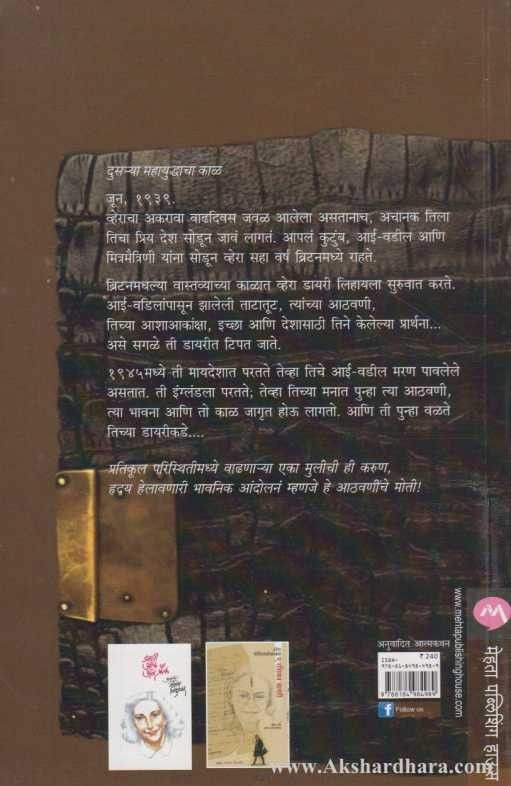 दुसऱ्या महायुद्धाचा काळ
जून, १९३९.
व्हेराचा अकरावा वाढदिवस जवळ आलेला असतानाच, अचानक तिला
तिचा प्रिय देश सोडून जावं लागतं. आपलं कुटुंब, आई-वडील आणि
मित्रमैत्रिणी यांना सोडून व्हेरा सहा वर्ष ब्रिटनमध्ये राहते.
ब्रिटनमधल्या वास्तव्याच्या काळात व्हेरा डायरी लिहायला सुरुवात करते.
आई-वडिलांपासून झालेली ताटातूट, त्यांच्या आठवणी,
तिच्या आशाआकांक्षा, इच्छा आणि देशासाठी तिने केलेल्या प्रार्थना...
असे सगळे ती डायरीत टिपत जाते.
१९४५मध्ये ती मायदेशात परतते तेव्हा तिचे आई-वडील मरण पावलेले
असतात. ती इंग्लंडला परतते; तेव्हा तिच्या मनात पुन्हा त्या आठवणी,
त्या भावना आणि तो काळ जागृत होऊ लागतो. आणि ती पुन्हा वळते
तिच्या डायरीकडे....
प्रतिकूल परिस्थितीमध्ये वाढणाऱ्या एका मुलीची ही करुण,
हृदय हेलावणारी भावनिक आंदोलनं म्हणजे हे आठवणींचे मोती!
www.mehtapublishinghouse.com
मेहता पब्लिशिंग हाऊस
अनुवादित आत्मकथन
₹ 240
ISBN-
9788184984989
Follow us
www.Akshardhara.com